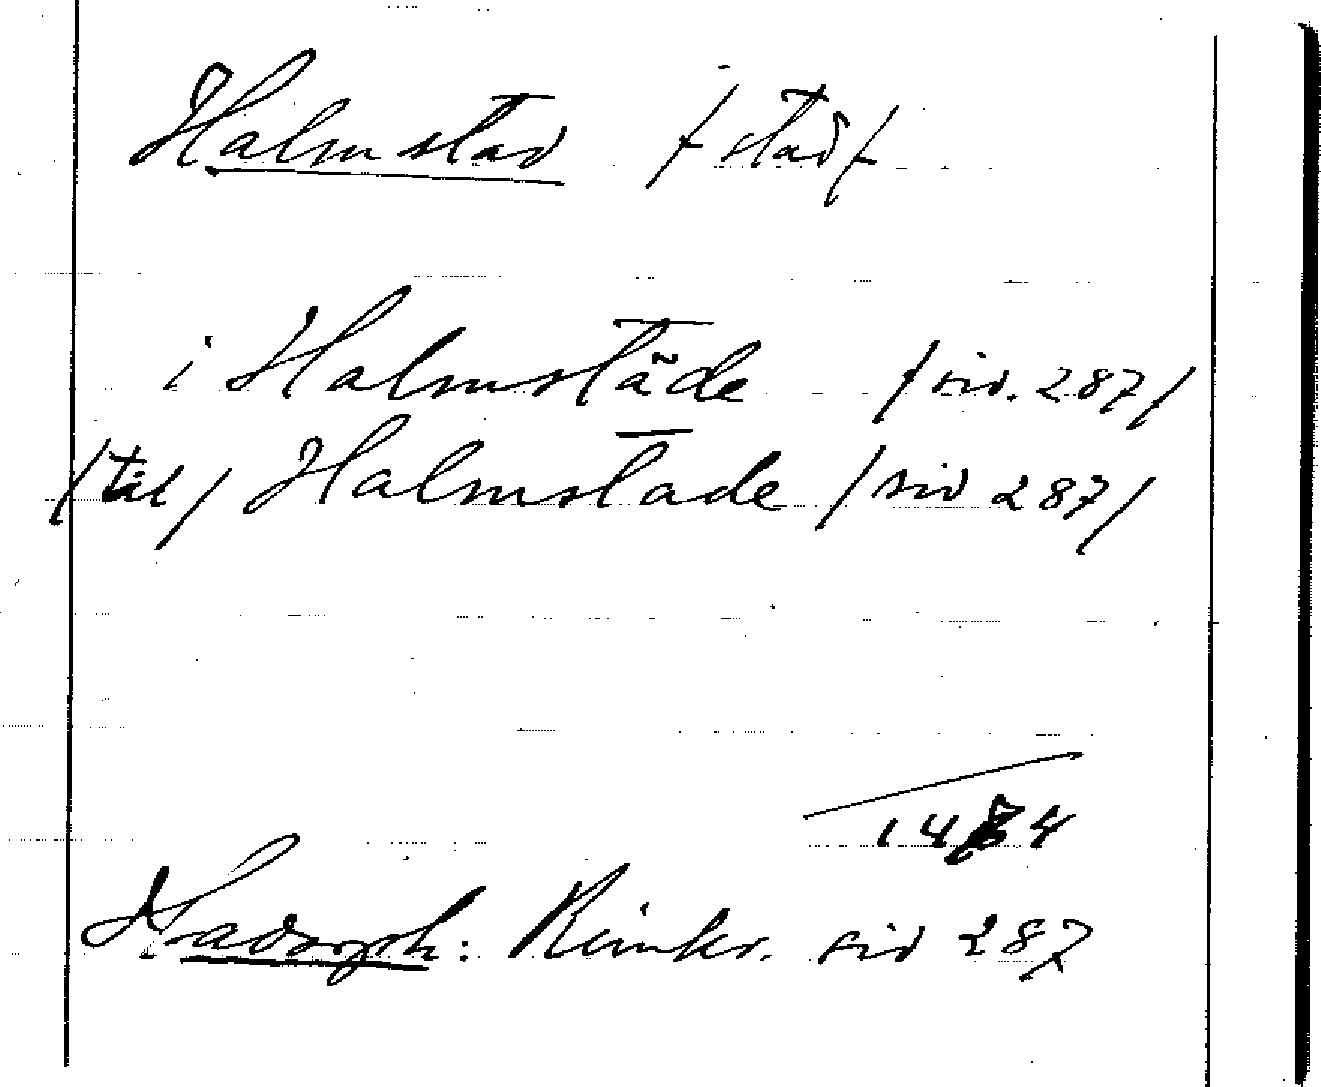 Halmstad /stad/
i Halmstãde /sid. 287/
/til/ Halmstade /sid 287/
1484
Hadorph: Rimkr. sid 287